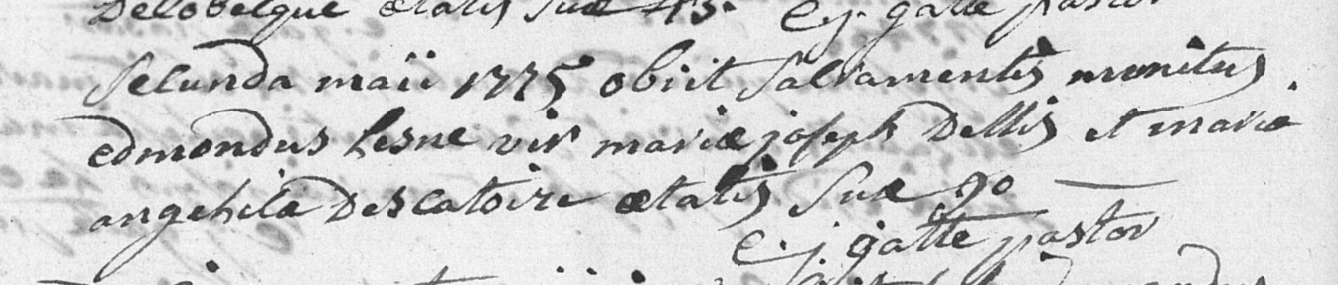 Delobelque ætatis suæ 45. C. j. gatte pastor
secunda maii 1775 obiit sacramentis munitus
edmondus Lesne vir mariæ joseph Dellis et mariæ
angelicæ Descatoire ætatis suæ 70
C. j. gatte pastor